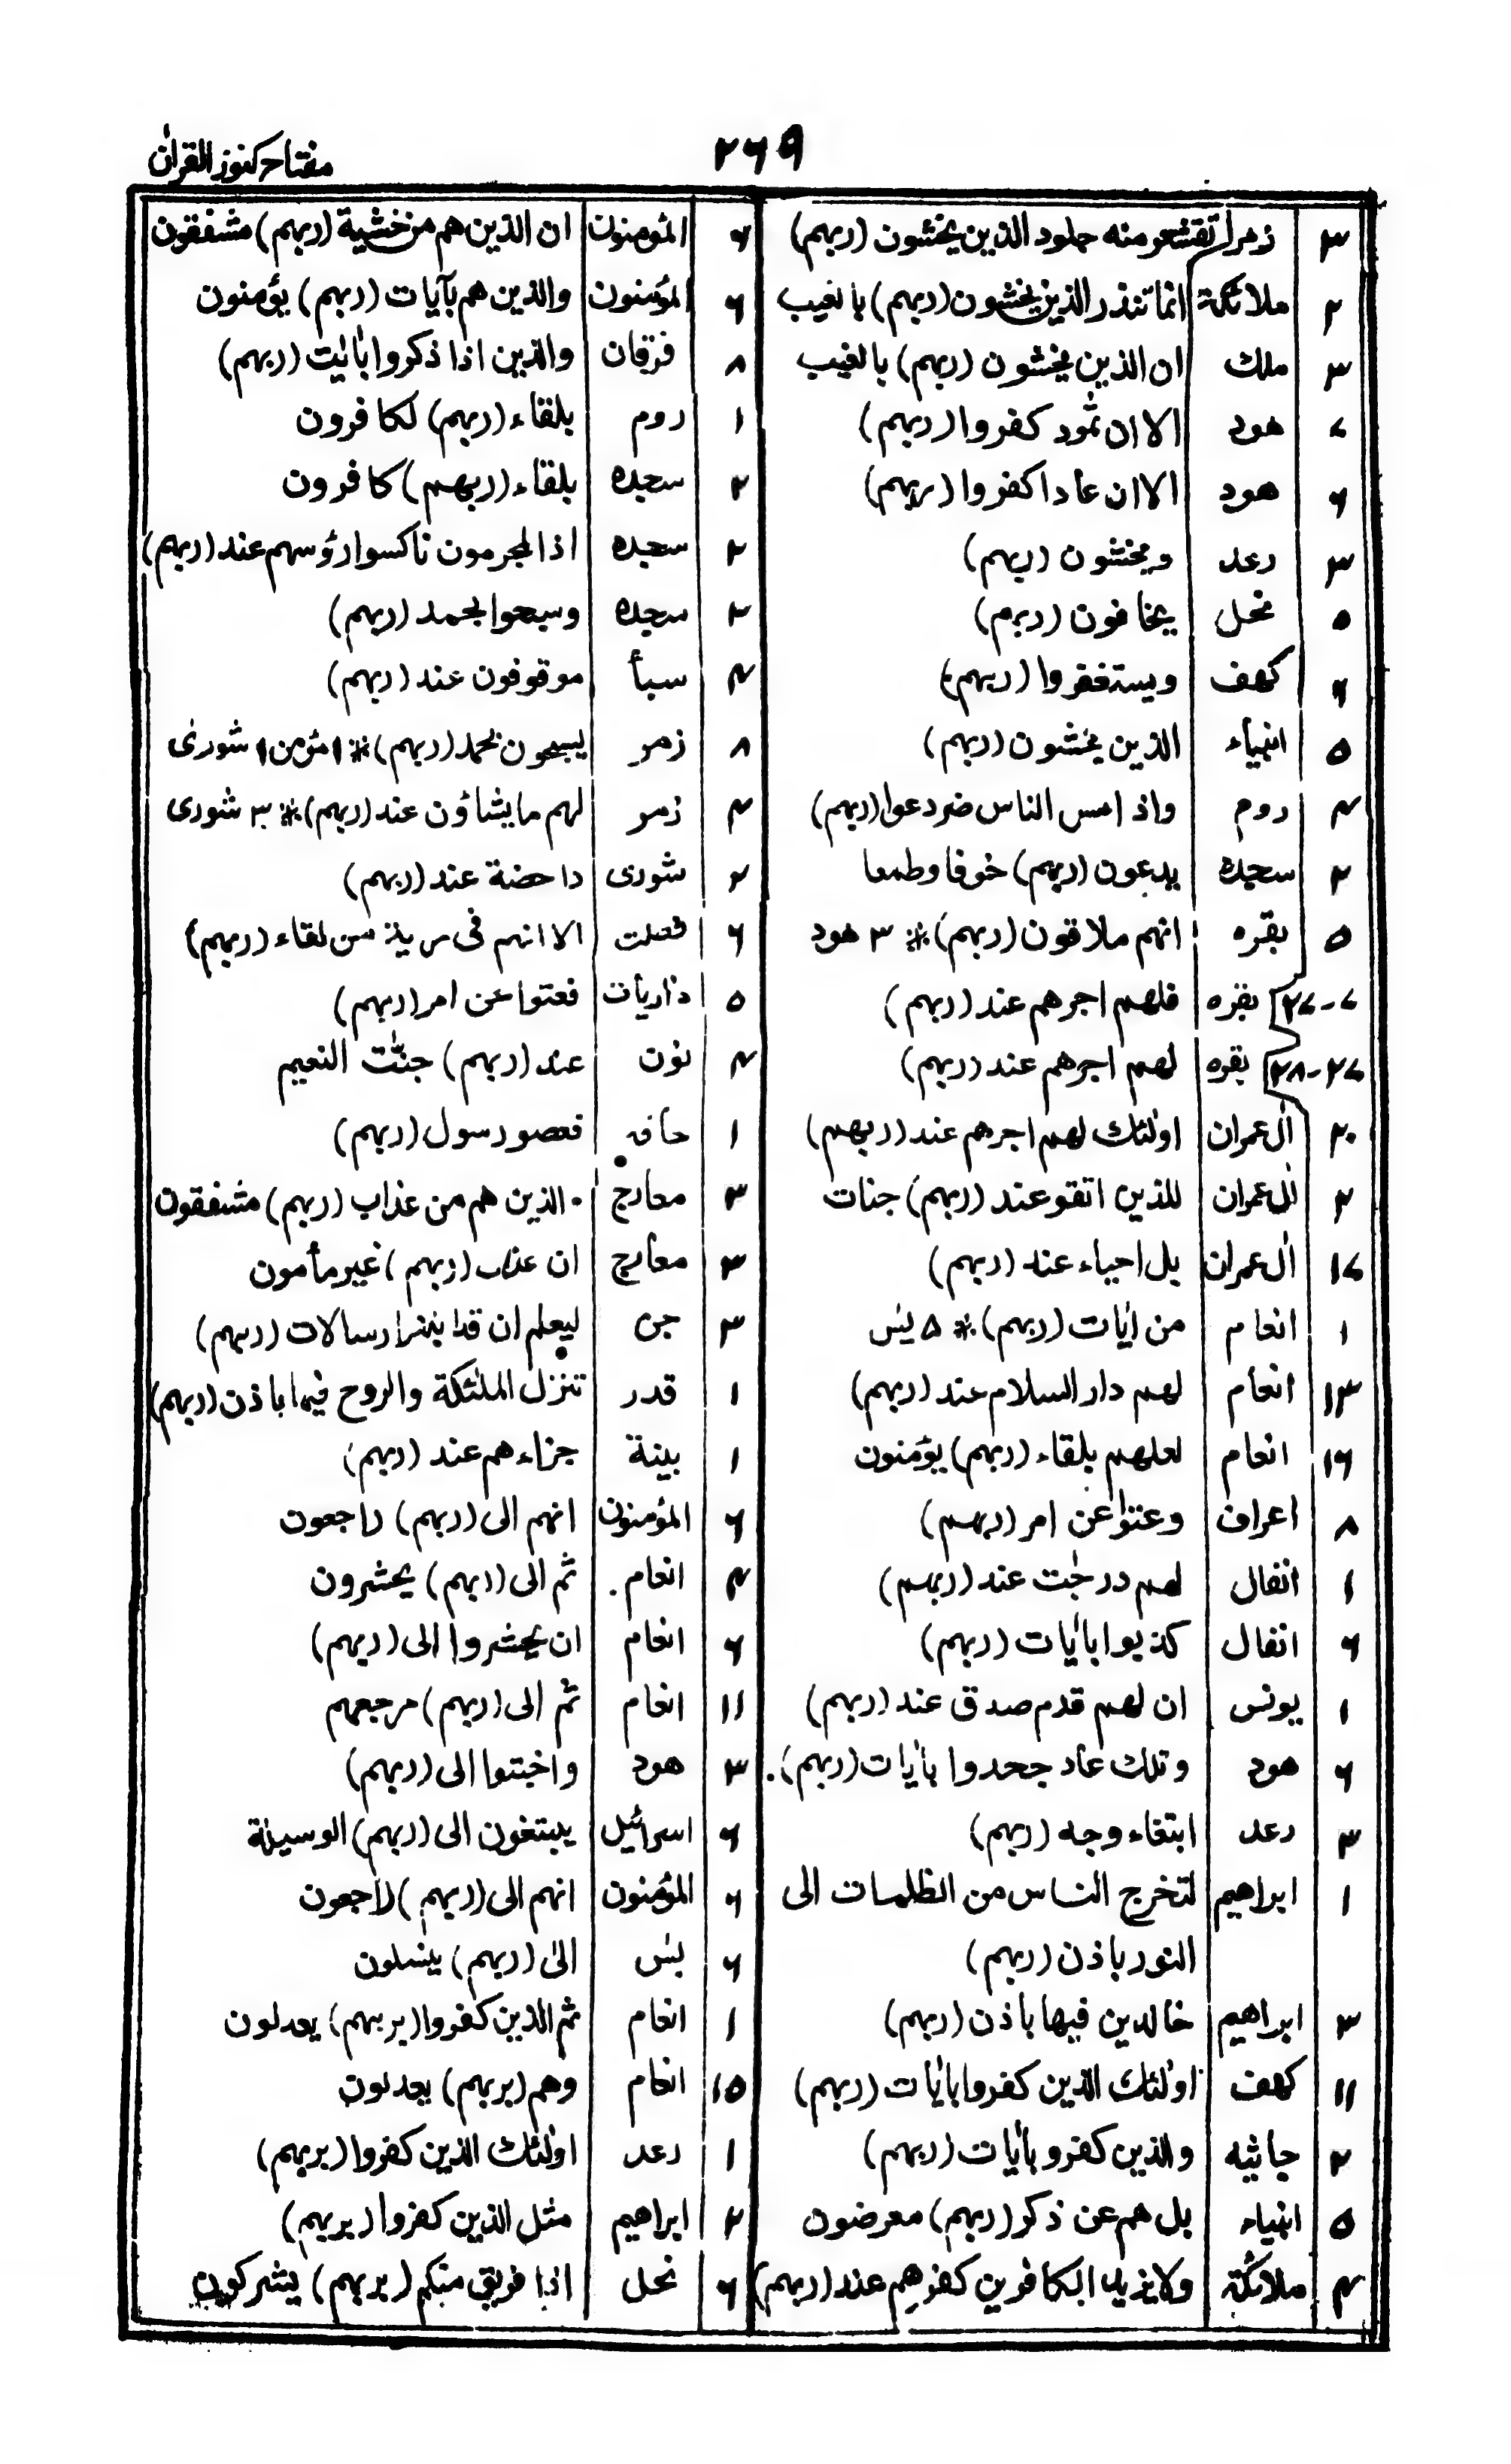 مفتاح كنوز القرآن
٢٦٩
٣ زمر تقشعر منه جلود الذين يخشون (ربهم)
٢ ملائكة انما تنذر الذين يخشون (ربهم) بالغيب
٣ ملك ان الذين يخشون (ربهم) بالغيب
٧ هود الا ان ثمود كفروا (ربهم)
٦ هود الا ان عادا كفروا (ربهم)
٣ رعد ويخشون (ربهم)
٥ نحل يخافون (ربهم)
٦ كهف ويستغفروا (ربهم)
٥ انبياء الذين يخشون (ربهم)
٤ روم واذا مس الناس ضر دعوا (ربهم)
٢ سجده يدعون (ربهم) خوفا وطمعا
٥ بقره انهم ملاقون (ربهم) * ٣ هود
٧-٣٧ بقره فلهم اجرهم عند (ربهم)
٣٧-٣٨ بقره لهم اجرهم عند (ربهم)
٢٠ اٰل عمران اولئك لهم اجرهم عند (ربهم)
٢ اٰل عمران للذين اتقو عند (ربهم) جنات
١٧ اٰل عمران بل احياء عند (ربهم)
١ انعام من اٰيات (ربهم) * ٥ يٰس
١٣ انعام لهم دار السلام عند (ربهم)
١٦ انعام لعلهم بلقاء (ربهم) يؤمنون
٨ اعراف وعتوا عن امر (ربهم)
١ انفال لهم درجٰت عند (ربهم)
٦ انفال كذبوا باٰيات (ربهم)
١ يونس ان لهم قدم صدق عند (ربهم)
٦ هود وتلك عاد جحدوا باٰيات (ربهم)
٣ رعد ابتغاء وجه (ربهم)
١ ابراهيم لتخرج الناس من الظلمات الى
النور باذن (ربهم)
٣ ابراهيم خالدين فيها باذن (ربهم)
١١ كهف اولئك الذين كفروا باٰيات (ربهم)
٢ جاثيه والذين كفرو باٰيات (ربهم)
٥ انبياء بل هم عن ذكر (ربهم) معرضون
٤ ملائكة ولا يزيد الكافرين كفرهم عند (ربهم)
٦ المؤمنون ان الذين هم من خشية (ربهم) مشفقون
٦ المؤمنون والذين هم بآيات (ربهم) يؤمنون
٨ فرقان والذين اذا ذكروا باٰيٰت (ربهم)
١ روم بلقاء (ربهم) لكافرون
٢ سجده بلقاء (ربهم) كافرون
٢ سجده اذ المجرمون ناكسوا رؤسهم عند (ربهم)
٢ سجده وسبحوا بحمد (ربهم)
٤ سبأ موقوفون عند (ربهم)
٨ زمر يسبحون بحمد (ربهم) * ١ مؤمن ١ شورىٰ
٤ زمر لهم ما يشاؤن عند (ربهم) * ٣ شورى
٢ شورى داحضة عند (ربهم)
٦ فصلت الا انهم فى مرية من لقاء (ربهم)
٥ ذاريات فعتوا عن امر (ربهم)
٤ نون عند (ربهم) جنّٰت النعيم
١ حاقه فعصو رسول (ربهم)
٣ معارج الذين هم من عذاب (ربهم) مشفقون
٣ معارج ان عذاب (ربهم) غير مأمون
٣ جن ليعلم ان قد ابلغوا رسالات (ربهم)
١ قدر تنزل الملئكة والروح فيها باذن (ربهم)
١ بينة جزاءهم عند (ربهم)
٦ المؤمنون انهم الى (ربهم) راجعون
٤ انعام ثم الى (ربهم) يحشرون
٦ انعام ان يحشروا الى (ربهم)
١١ انعام ثم الى (ربهم) مرجعهم
٣ هود واخبتوا الى (ربهم)
٦ اسرائيل يبتغون الى (ربهم) الوسيلة
٦ المؤمنون انهم الى (ربهم) راجعون
٦ يٰس الىٰ (ربهم) ينسلون
١ انعام ثم الذين كفروا (بربهم) يعدلون
١٥ انعام وهم (بربهم) يعدلون
١ رعد اولئك الذين كفروا (بربهم)
٢ ابراهيم مثل الذين كفروا (بربهم)
٦ نحل اذا فريق منكم (بربهم) يشركون